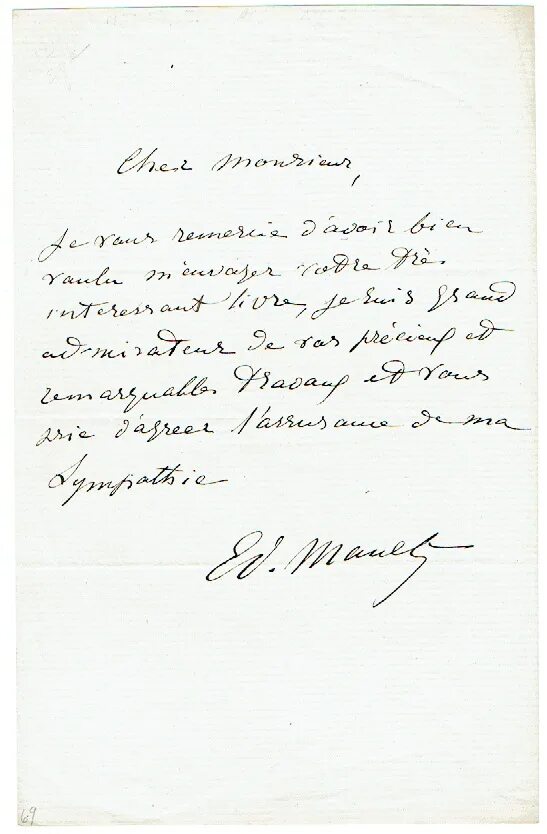 Cher Monsieur,
Je vous remercie d'avoir bien
voulu m'envoyer votre très
interessant livre, je suis grand
admirateur de vos précieux et
remarquables travaux et vous
prie d'agreer l'assurance de ma
Sympathie
Ed. Manet
69